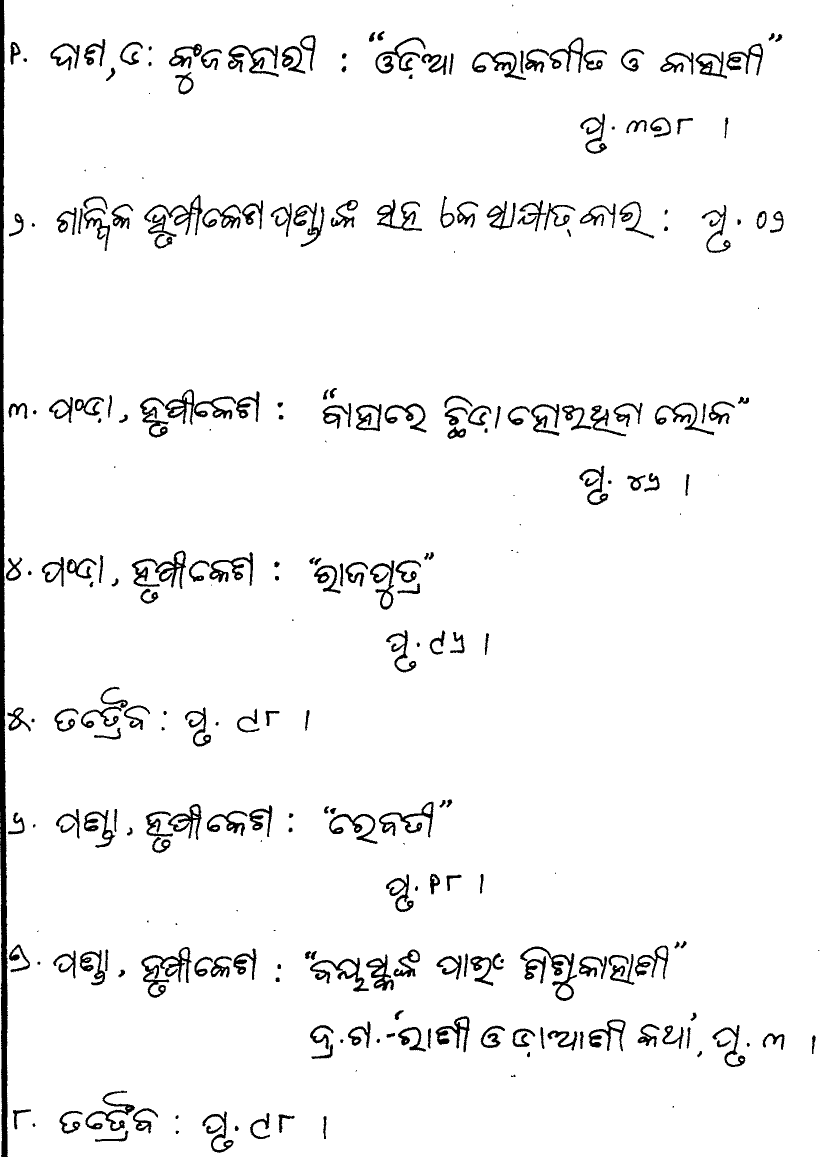 ୧. ଦାଶ, ଡ: କୁଂଜବିହାରୀ : "ଓଡ଼ିଆ ଲୋକଗୀତ ଓ କାହାଣୀ"
ପୃ. ୩୭୮ ।
୨. ଗାଳ୍ପିକ ହୃଷୀକେଶ ପଣ୍ଡାଙ୍କ ସହ କେ ସାକ୍ଷାତ୍ କାର : ପୃ. ୦୨
୩. ପଂଡ଼ା, ହୃଷୀକେଶ : "ବାହାରେ ଛିଡ଼ା ହୋଇଥିବା ଲୋକ"
ପୃ. ୪୬ ।
୪. ପଂଡ଼ା, ହୃଷୀକେଶ : "ରାଜପୁତ୍ର"
ପୃ. ୯୬ ।
୫. ତତ୍ରୈବ : ପୃ. ୯୮ ।
୬. ପଣ୍ଡା, ହୃଷୀକେଶ : "ରେବତୀ"
ପୃ. ୧୮ ।
୭. ପଣ୍ଡା, ହୃଷୀକେଶ : "ବୟସ୍କଙ୍କ ପାଇଂ ଶିଶୁକାହାଣୀ"
ଦ୍ର.ଗ.-ରାଣୀ ଓ ଡ଼ାଆଣୀ କଥା, ପୃ. ୩ ।
୮. ତତ୍ରୈବ : ପୃ. ୯୮ ।